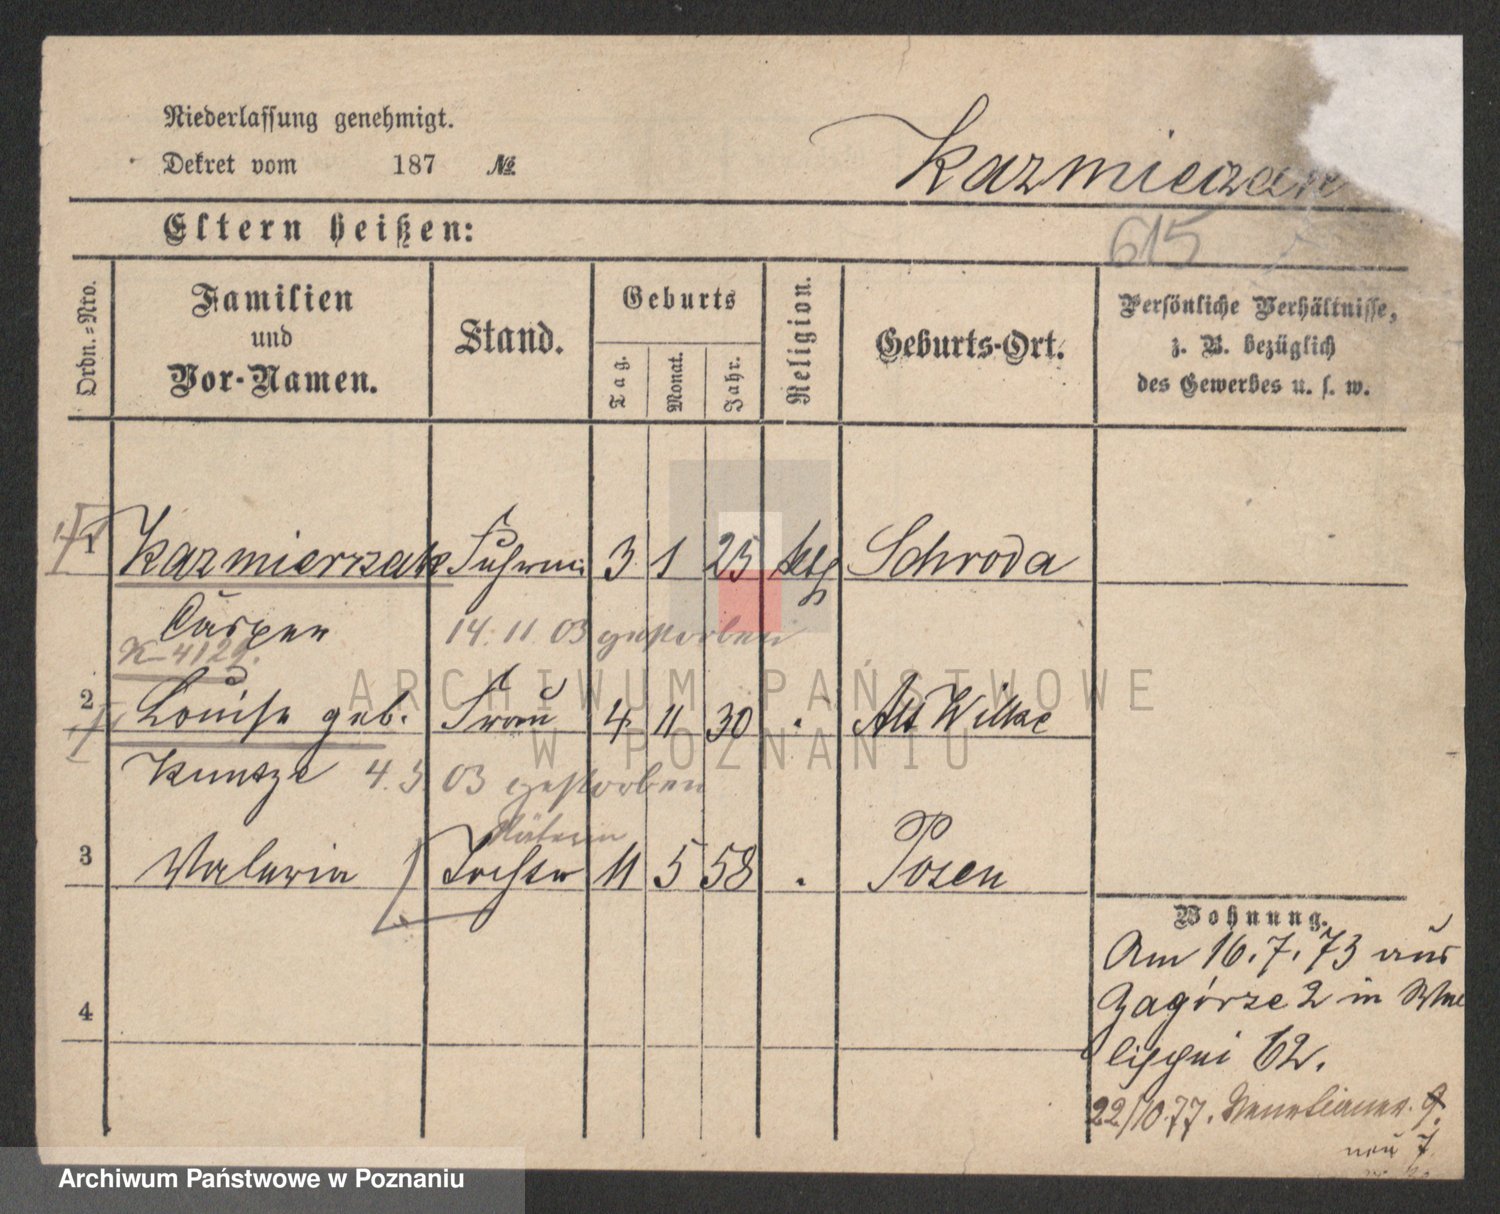 Niederlassung genehmigt.
Dekret vom 187 №
Kazmierzak
615
Eltern heißen:
Ordn.=Nro.
Familien
und
Vor-Namen.
Stand.
Geburts
Tag.
Monat.
Jahr.
Religion.
Geburts-Ort.
Persönliche Verhältnisse,
z. B. bezüglich
des Gewerbes u. s. w.
1 Kazmierzak 3 1 25 kth Schroda
Casper 14. 11. 03 gestorben
K-4129.
2 Louise geb. Frau 4 11 30 . Alt Wilke
Kuntze 4. 3. 03 gestorben
Näterin
3 Valeria Tochter 11 5 58 . Posen
4
Wohnung.
Am 16. 7. 73 aus
Zagórze 2 in
lischei 62.
22/10.77. Venetianer. 9.
neu 7
ARCHIWUM PAŃSTWOWE
W POZNANIU
Archiwum Państwowe w Poznaniu